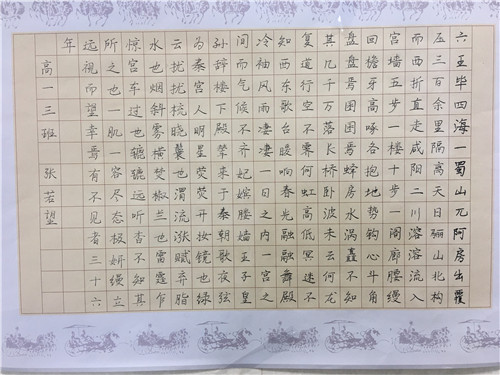 六王毕四海一蜀山兀阿房出覆
压三百余里隔离天日骊山北构
而西折直走咸阳二川溶溶流入
宫墙五步一楼十步一阁廊腰缦
回檐牙高啄各抱地势钩心斗角
盘盘焉囷囷焉蜂房水涡矗不知
其几千万落长桥卧波未云何龙
复道行空不霁何虹高低冥迷不
知西东歌台暖响春光融融舞殿
冷袖风雨凄凄一日之内一宫之
间而气候不齐妃嫔媵嫱王子皇
孙辞楼下殿辇来于秦朝歌夜弦
为秦宫人明星荧荧开妆镜也绿
云扰扰梳晓鬟也渭流涨腻弃脂
水也烟斜雾横焚椒兰也雷霆乍
惊宫车过也辘辘远听杳不知其
所之也一肌一容尽态极妍缦立
远视而望幸焉有不见者三十六
年
高一三班 张若望